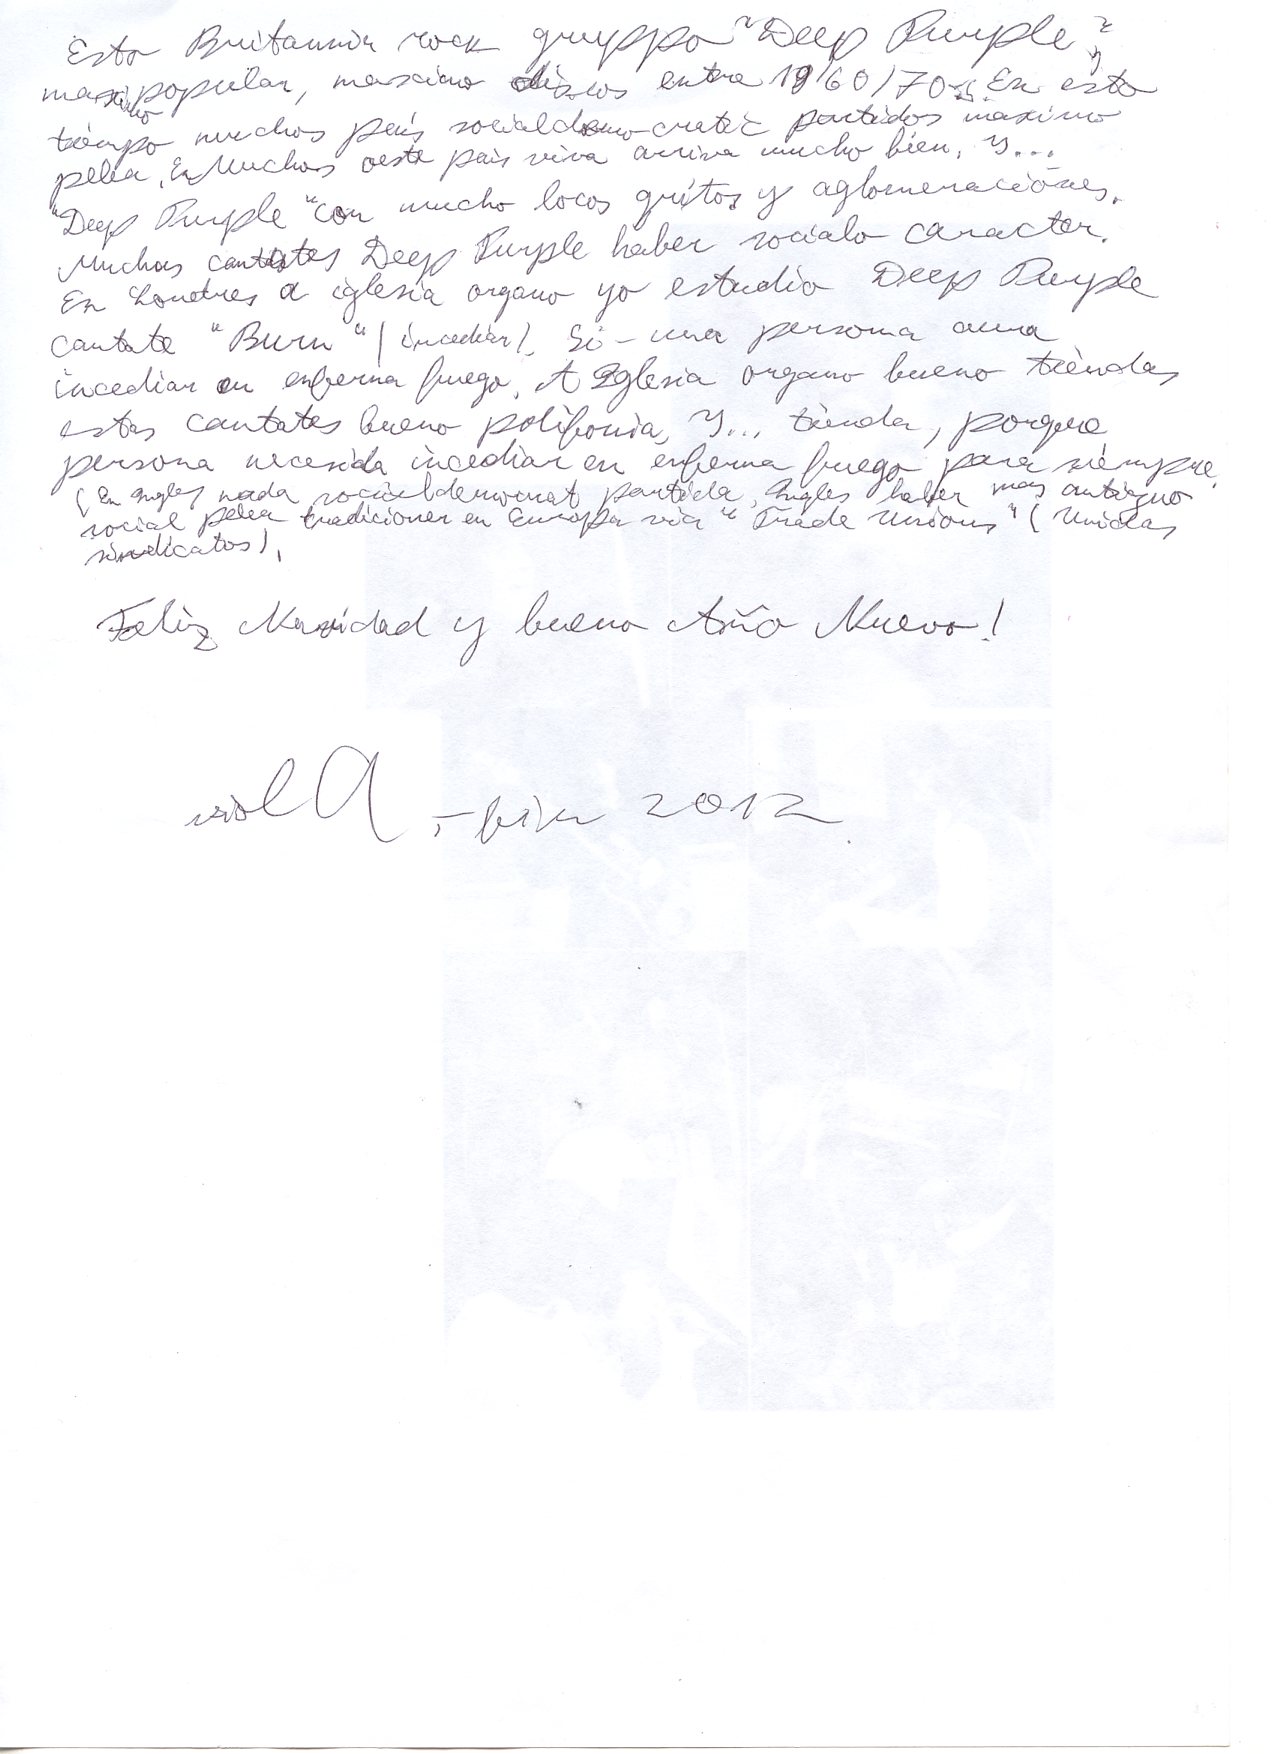 Esto Britannia rock gruppo "Deep Purple",
maximo popular, maximo discos entre 1960/70-s. En esto
tiempo muchos pais socialdemocratic partidos maximo
pelea. En Muchos oeste pais viva arriva mucho bien. Y...
"Deep Purple" con mucho locos gritos y aglomeraciones.
Muchas cantates Deep Purple haber socialo caracter.
En Londres a iglesia organo yo estudio Deep Purple
cantate "Burn" (incediar). Si - una persona
incediar en enferna fuego. A Iglesia organo bueno tiendas
estas cantates bueno polifonia. Y... tienda, porque
persona necesida incediar en enferna fuego para siempre.
(En Ingles nada socialdemocrat partida, Ingles haber mas antiguo
social pelea tradiciones en Europa via "Trade Unions" (Unidas
sindicatos).
Feliz Navidad y bueno Año Nuevo!
2012